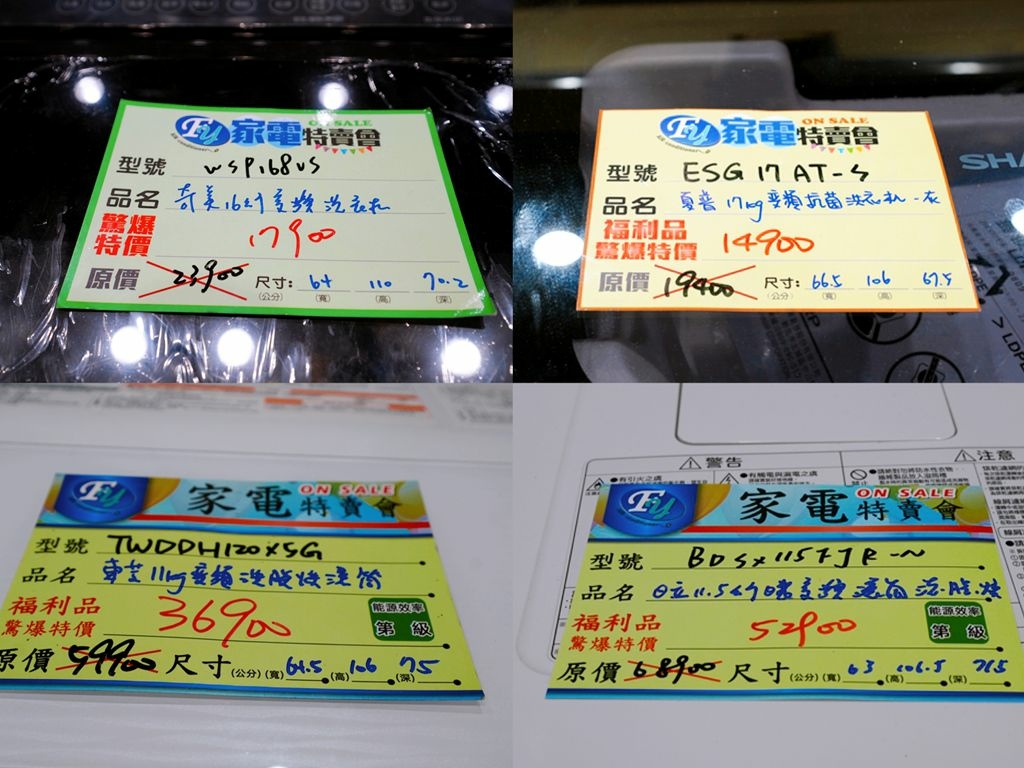 Fy 家電特賣會 ON SALE
air conditioner
型號 WSP168VS
品名 奇美16公斤變頻洗衣機
驚爆特價 17900
原價 23900 尺寸:(公分) 64(寬) 110(高) 70.2(深)
Fy 家電特賣會 ON SALE
air conditioner
型號 ESG17AT-S
品名 夏普17kg變頻抗菌洗衣機-灰
福利品
驚爆特價 14900
原價 19400 尺寸:(公分) 66.5(寬) 106(高) 67.5(深)
SHA
LDPE
Fy 家電特賣會 ON SALE
型號 TWDDH120X5G
品名 東芝11kg變頻洗脫烘滾筒
福利品
驚爆特價 36900
能源效率
第 級
原價 59900 尺寸(公分)(寬)61.5(高)106(深)75
警告
注意
有引火之虞
有觸電與漏電之虞
禁止
Fy 家電特賣會 ON SALE
型號 BDSX115FJR-N
品名 日立11.5公斤 變頻滾筒洗.脫.烘
福利品
驚爆特價 52900
能源效率
第 級
原價 68900 尺寸(公分)(寬)63(高)106.5(深)71.5